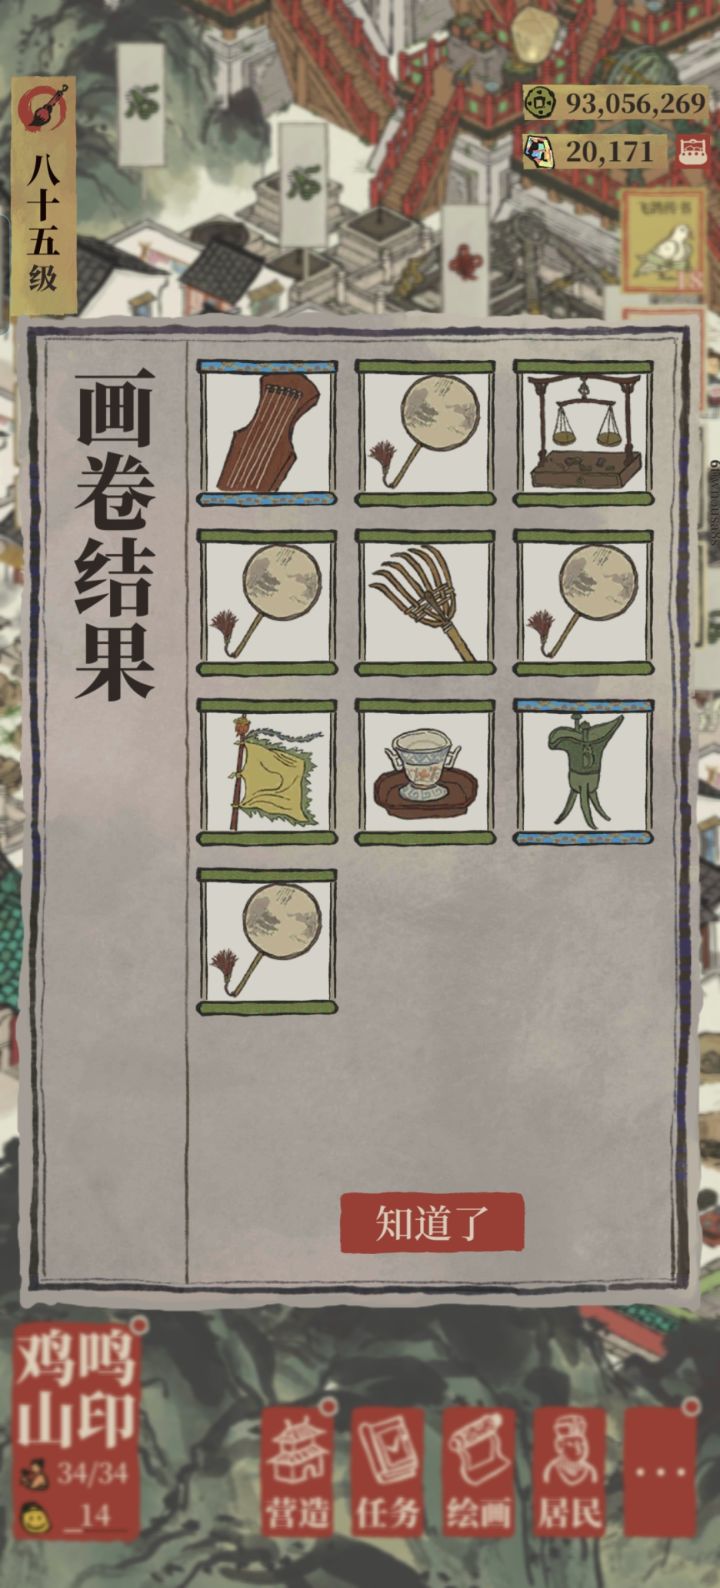 八十五级
93,056,269
20,171
飞鸽传书
18
画卷结果
知道了
鸡鸣
山印
34/34
14
营造
任务
绘画
居民
...